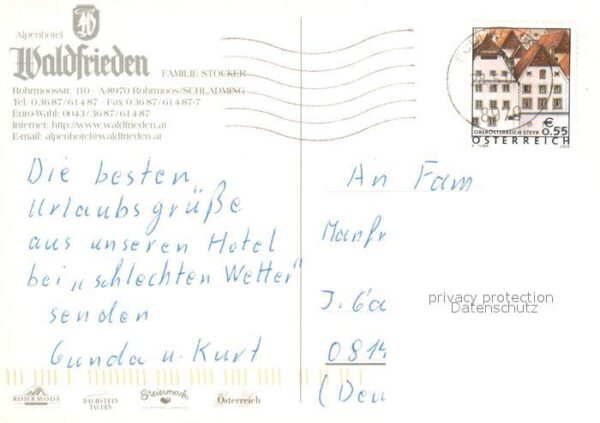 Alpenhotel
Waldfrieden
FAMILIE STOCKER
Rohrmoosstr. 110 · A-8970 Rohrmoos/SCHLADMING
Tel. 0 36 87/6 14 87 · Fax 0 36 87/6 14 87-7
Euro-Wahl: 0043/36 87/6 14 87
Internet: http://www.waldfrieden.at
E-mail: alpenhotel@waldfrieden.at
€
0.55
OBERÖSTERREICH STEYR
ÖSTERREICH
Die besten
Urlaubsgrüße
aus unseren Hotel
bei "schlechten Wetter"
senden
Gunda u. Kurt
An Fam
Manfr
J. Ga
0814
(Deu
privacy protection
Datenschutz
ROHRMOOS
DACHSTEIN
TAUERN
Steiermark
Österreich